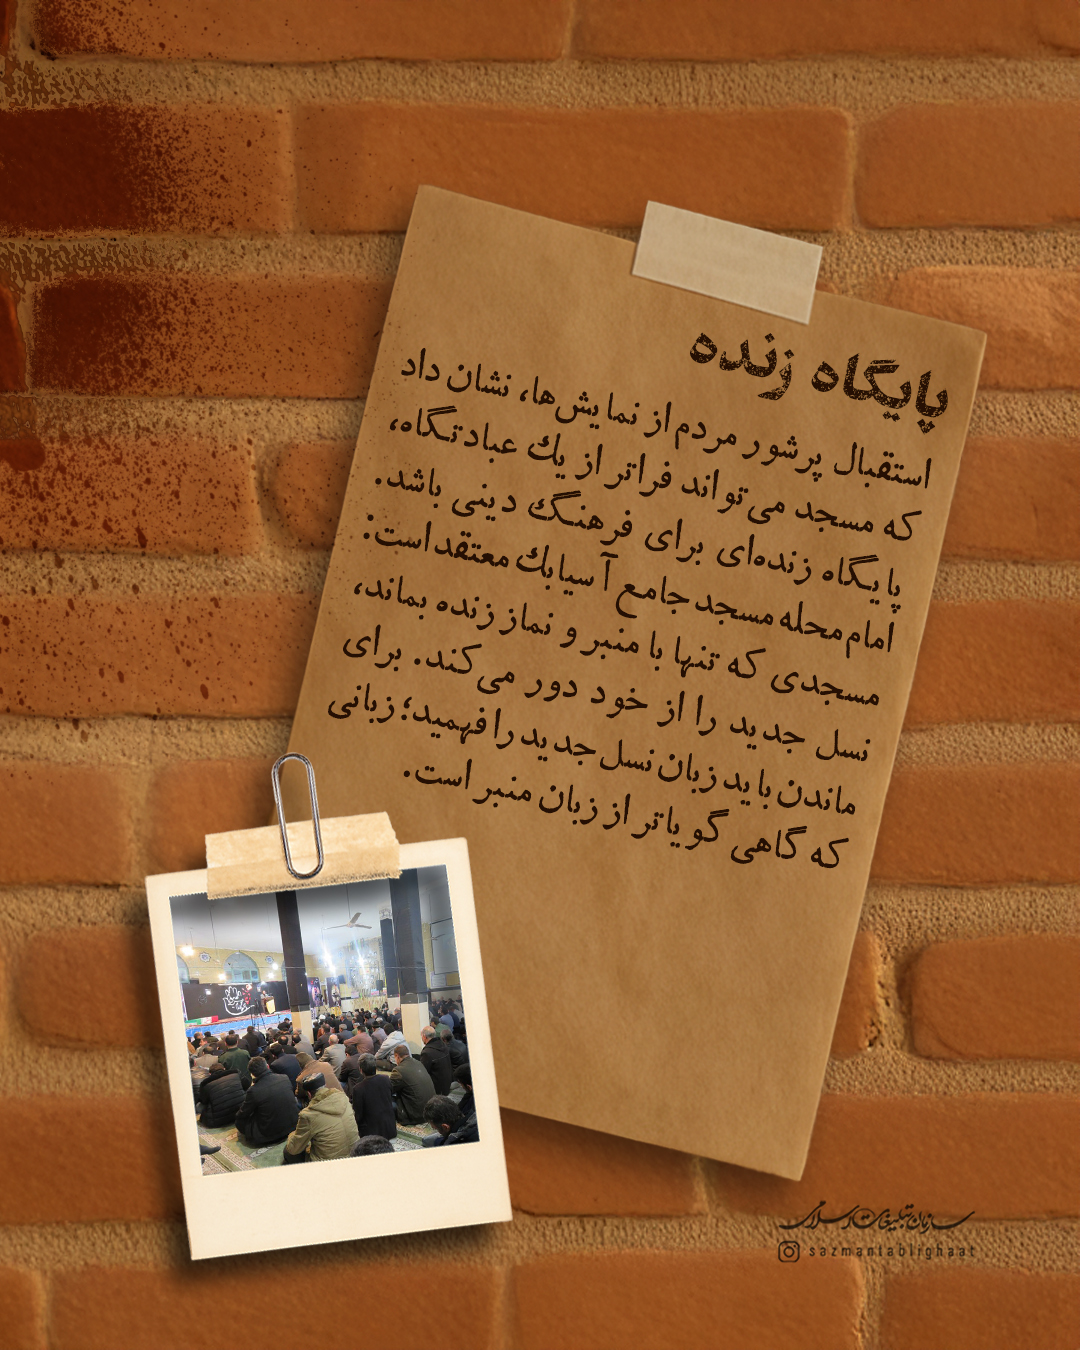 پایگاه زنده
استقبال پرشور مردم از نمایش‌ها، نشان داد
که مسجد می‌تواند فراتر از یك عبادتگاه،
پایگاه زنده‌ای برای فرهنگ دینی باشد.
امام محله مسجد جامع آسیابك معتقد است:
مسجدی که تنها با منبر و نماز زنده بماند،
نسل جدید را از خود دور می‌کند. برای
ماندن باید زبان نسل جدید را فهمید؛ زبانی
که گاهی گویاتر از زبان منبر است.
سازمان تبلیغات اسلامی
sazmantablighaat